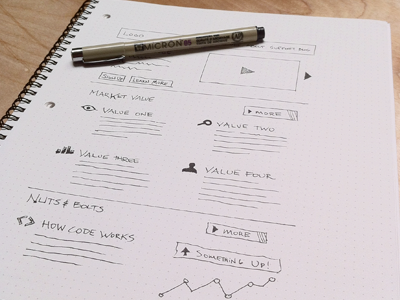 LOGO
SUPPORT BLOG
MICRON 05
SIGN UP LEARN MORE
MARKET VALUE
▶ MORE
VALUE ONE
VALUE TWO
VALUE THREE
VALUE FOUR
NUTS & BOLTS
▶ MORE
HOW CODE WORKS
SOMETHING UP!